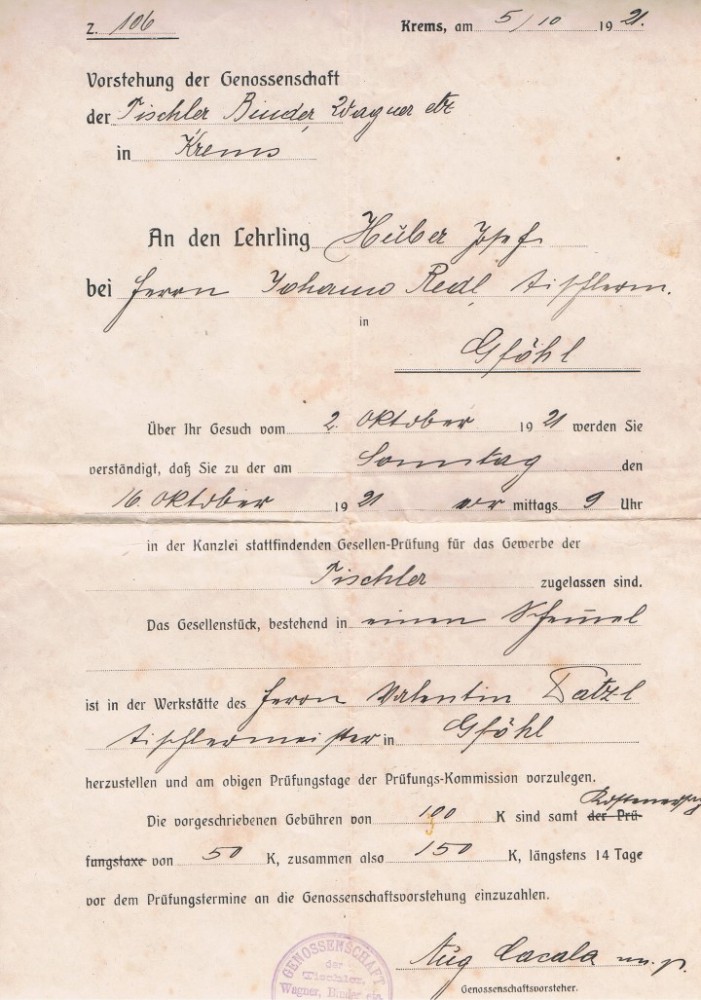 Z. 106 Krems, am 5/10 1921.
Vorstehung der Genossenschaft
der Tischler Binder, Wagner etz
in Krems
An den Lehrling Huber Josef
bei Herrn Johann Redl, Tischlerm.
in
Gföhl
Über Ihr Gesuch vom 2. Oktober 1921 werden Sie
verständigt, daß Sie zu der am Sonntag den
16. Oktober 1921 vor mittags 9 Uhr
in der Kanzlei stattfindenden Gesellen-Prüfung für das Gewerbe der
Tischler zugelassen sind.
Das Gesellenstück, bestehend in einen Schemel
ist in der Werkstätte des Herrn Valentin Patzl
Tischlermeister in Gföhl
herzustellen und am obigen Prüfungstage der Prüfungs-Kommission vorzulegen.
Kostenersatz
Die vorgeschriebenen Gebühren von 100 K sind samt der Prü-
fungstaxe von 50 K, zusammen also 150 K, längstens 14 Tage
vor dem Prüfungstermine an die Genossenschaftsvorstehung einzuzahlen.
GENOSSENSCHAFT
der
Tischler,
Wagner, Binder etz.
Aug Cacala m. p.
Genossenschaftsvorsteher.